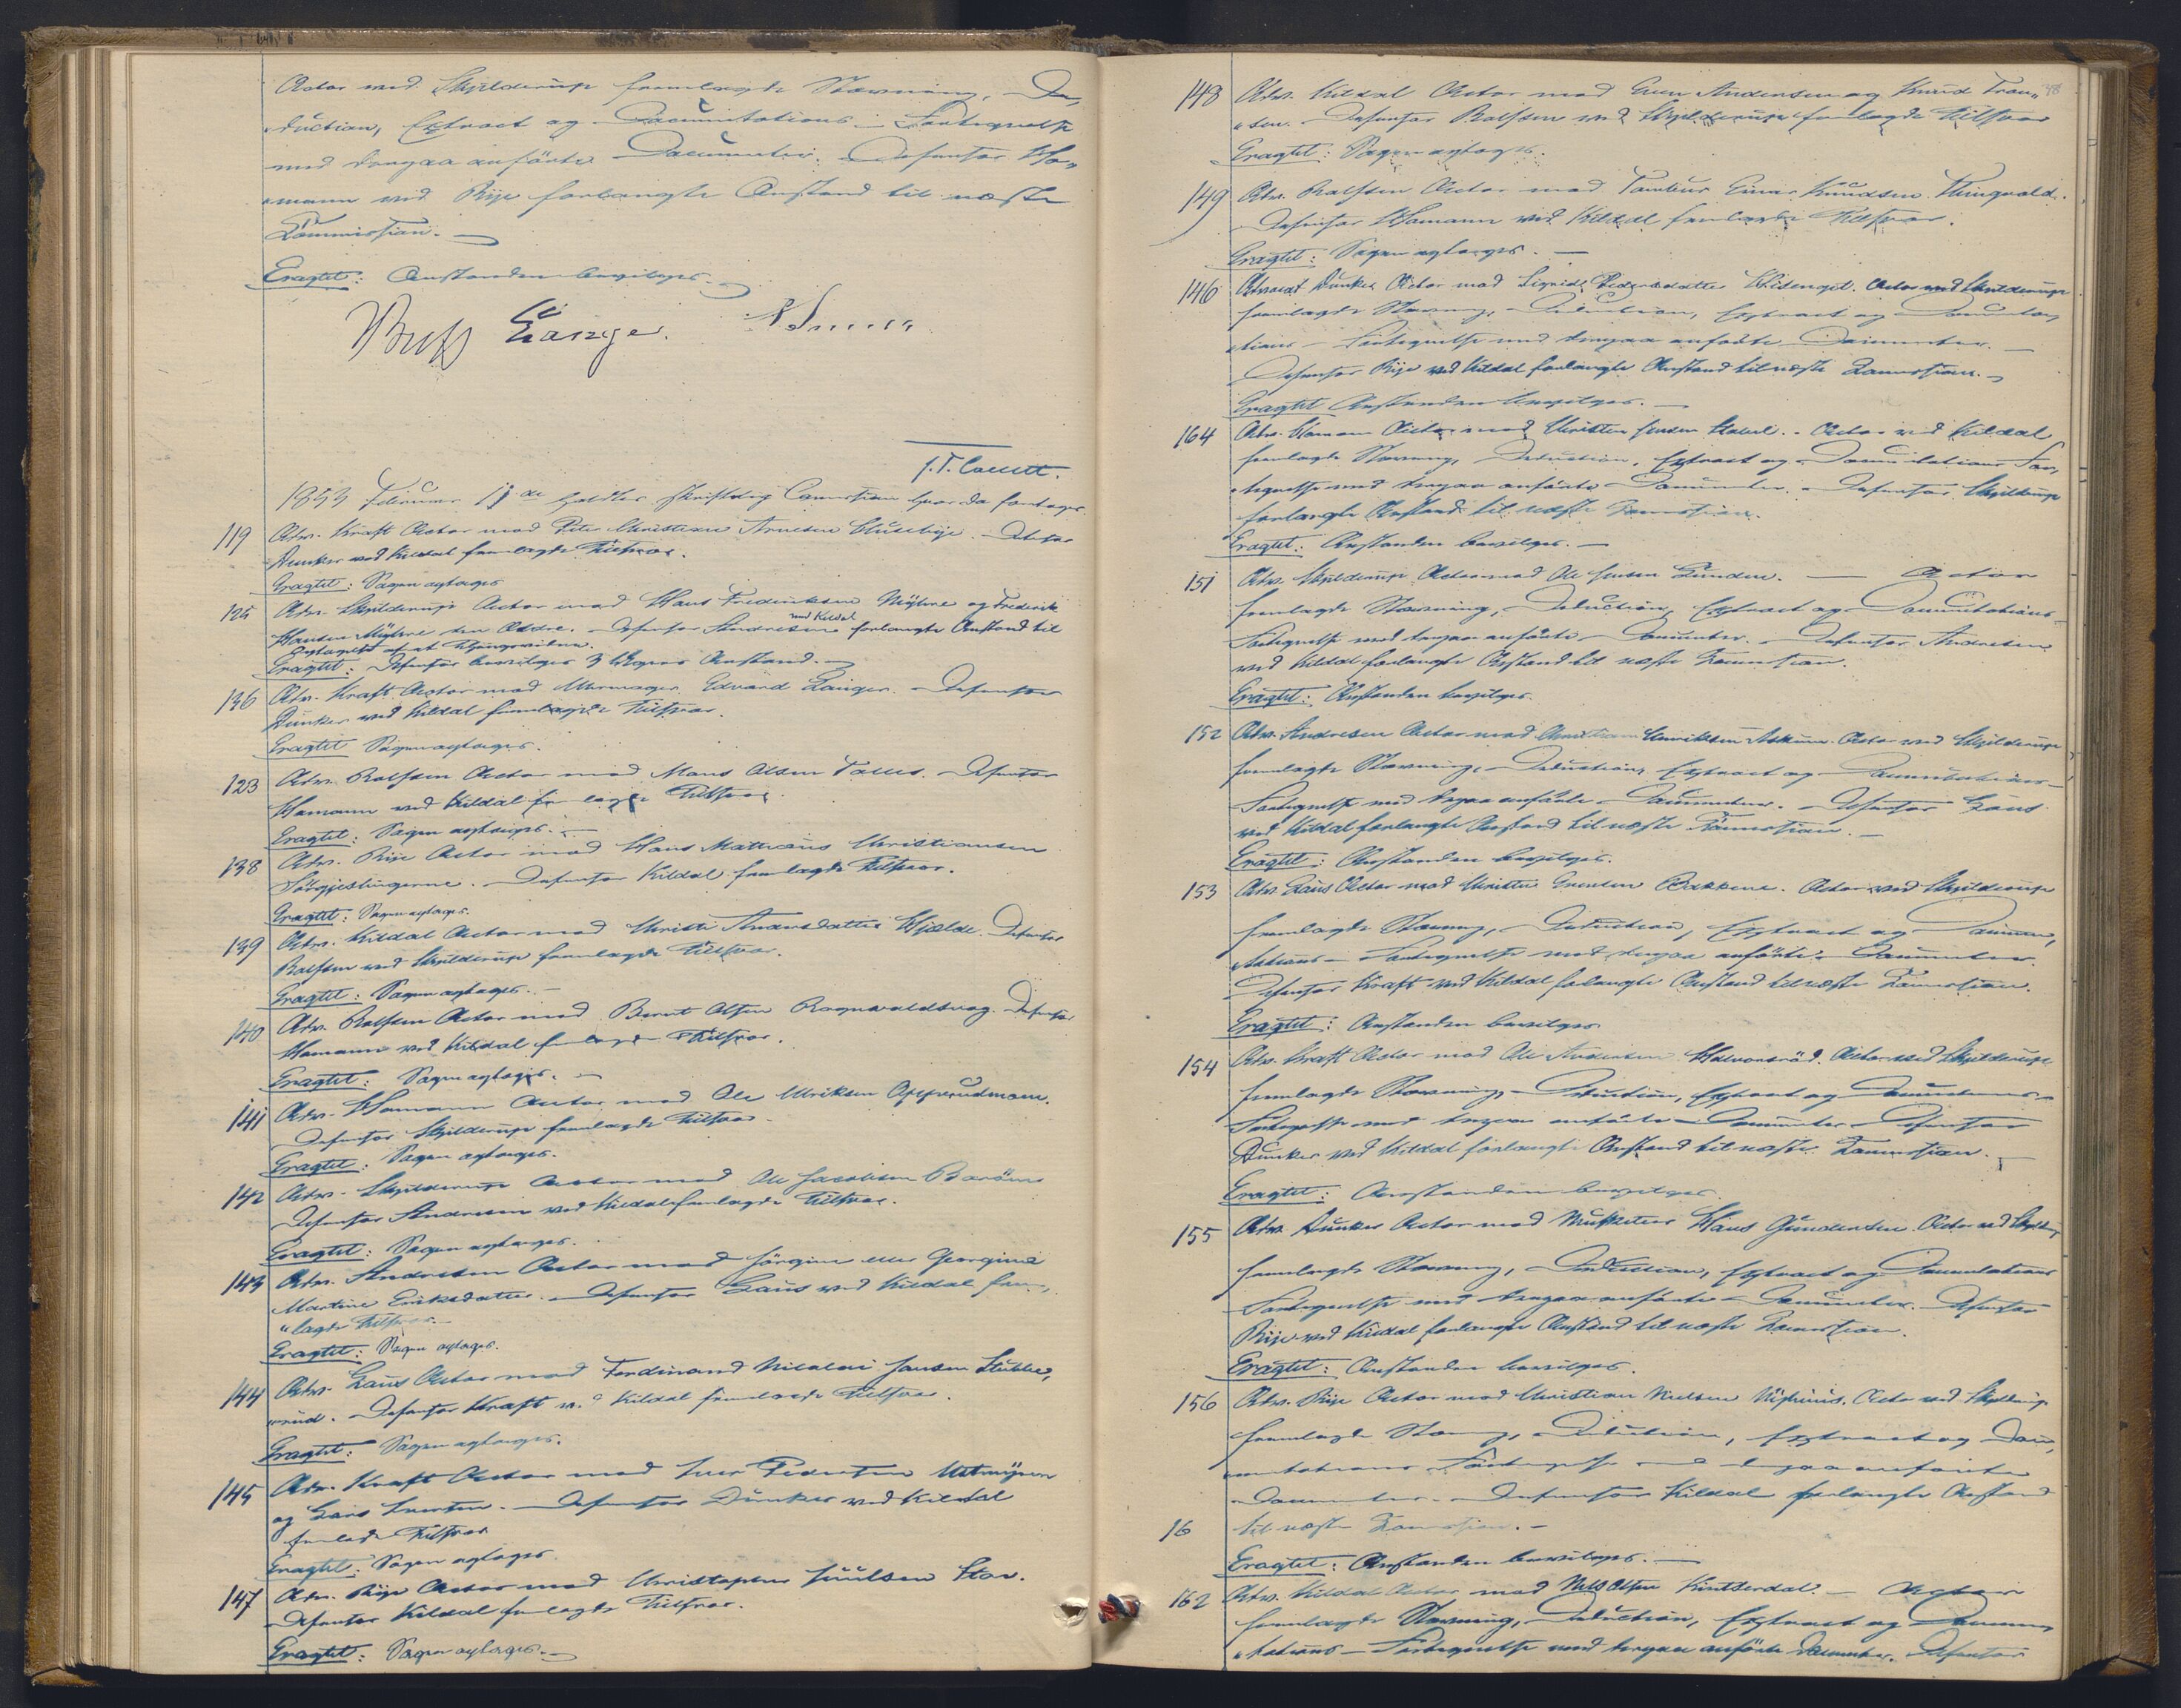 Actor med Skjelderup fremlagde Stevning, De„
„duction, Extract og Documentations-Fortegnelse
med derpaa anførte Documenter. Defensor Ho„
„mann ved Rije forlangte Anstand til næste
Commission. —
Eragtet: Anstanden bevilges.
Lange.
J. T. Collett.
1853 Februar holdtes skriftlig Commission hvor da foretages
119 Adv. Kraft Actor mod Peter Christian Arnesen Huseby. Defensor
Dunker ved Kildal fremlagde Tilsvar.
Eragtet: Sagen optages
125 Adv. Skjelderup Actor mod Hans Frederiksen Myhre og Frederik
ved Kildal
Hansen Myhre den Ældre. Defensor Andresen forlangte Anstand til
Eragtet: Defensor bevilges 3 Ugers Anstand. —
136 Adv. Kraft Actor mod Uhrmager Edvard Langer. Defensor
Dunker ved Kildal fremlagde Tilsvar.
Eragtet Sagen optages.
123 Adv. Rolfsen Actor mod Mons Olsen. Defensor
Homann ved Kildal fremlagde Tilsvar
Eragtet: Sagen optages. —
138 Adv. Rije Actor mod Hans Mathæus Christiansen
Defensor Kildal fremlagde Tilsvar.
Eragtet: Sagen optages.
139 Adv. Kildal Actor mod Christi Andersdatter Hjelde. Defensor
Rolfsen ved Skjelderup fremlagde Tilsvar.
Eragtet: Sagen optages. —
140 Adv. Rolfsen Actor mod Bernt Olsen Rognvaldsvog. Defensor
Homann ved Kildal fremlagde Tilsvar.
Eragtet: Sagen optages. —
141 Adv. Homann Actor mod Ole Ulriksen
Defensor Skjelderup fremlagde Tilsvar
Eragtet: Sagen optages.
142 Adv. Skjelderup Actor mod Ole Jacobsen
Defensor Andresen ved Kildal fremlagde Tilsvar.
Eragtet: Sagen optages.
143 Adv. Andresen Actor mod Jørgine eller Georgine
Martine Eriksdatter. Defensor Laus ved Kildal frem„
„lagde Tilsvar. —
Eragtet: Sagen optages.
144 Adv. Laus Actor mod Ferdinand Nicolai Jansen Stubbe„
„rud. Defensor Kraft v. Kildal fremlagde Tilsvar.
Eragtet: Sagen optages.
145 Adv. Kraft Actor mod Iver Pedersen
og Lars Iversen. Defensor Dunker ved Kildal
fremlagde Tilsvar
Eragtet: Sagen optages.
147 Adv. Rije Actor mod Christopher Juulsen Stov.
Defensor Kildal fremlagde Tilsvar.
Eragtet: Sagen optages. —
148 Adv. Kildal Actor mod Even Andersen og Knud Tron„
„sen. Defensor Rolfsen ved Skjelderup fremlagde Tilsvar
Eragtet: Sagen optages.
149 Adv. Rolfsen Actor mod Tambur Einar Knudsen Thingvold.
Defensor Homann ved Kildal fremlagde Tilsvar.
Eragtet: Sagen optages. —
146 Advocat Dunker Actor mod Sigrid Pedersdatter. Actor ved Skjelderup
fremlagde Stevning, Deduction, Extract og Documenta„
„tions-Fortegnelse med derpaa anførte Documenter. —
Defensor Rije ved Kildal forlangte Anstand til næste Commission. —
Eragtet Anstanden bevilges. —
164 Adv. Homann Actor mod Christen Jensen. Actor ved Kildal
fremlagde Stevning, Deduction, Extract og Documentations For„
„tegnelse med derpaa anførte Documenter. Defensor Skjelderup
forlangte Anstand til næste Commission.
Eragtet: Anstanden bevilges. —
151 Adv. Skjelderup Actor mod Ole Jensen Lundere. — Actor
fremlagde Stevning, Deduction, Extract og Documentations-
Fortegnelse med derpaa anførte Documenter. Defensor Andresen
ved Kildal forlangte Anstand til næste Commission.
Eragtet: Anstanden bevilges.
152 Adv. Andresen Actor mod Christian Henriksen Askum. Actor ved Skjelderup
fremlagde Stevning, Deduction, Extract og Documentations-
Fortegnelse med derpaa anførte Documenter. Defensor Laus
ved Kildal forlangte Anstand til næste Commission. —
Eragtet: Anstanden bevilges.
153 Adv. Laus Actor mod Christen Evensen Bakkene. Actor ved Skjelderup
fremlagde Stevning, Deduction, Extract og Documen„
„tations-Fortegnelse med derpaa anførte Documenter.
Defensor Kraft ved Kildal forlangte Anstand til næste Commission.
Eragtet: Anstanden bevilges
154 Adv. Kraft Actor mod Ole Andersen Halvorsrød. Actor ved Skjelderup
fremlagde Stevning, Deduction, Extract og Documentations-
Fortegnelse med derpaa anførte Documenter Defensor
Dunker ved Kildal forlangte Anstand til næste Commission. —
Eragtet: Anstanden bevilges.
155 Adv. Dunker Actor mod Musketeer Hans Gundersen. Actor ved Skjelderup
fremlagde Stevning, Deduction, Extract og Documentations
Fortegnelse med derpaa anførte Documenter. Defensor
Rije ved Kildal forlangte Anstand til næste Commission.
Eragtet: Anstanden bevilges.
156 Adv. Rije Actor mod Christian Nielsen Nyhuus. Actor ved Skjelderup
fremlagde Stevning, Deduction, Extract og Docu„
mentations Fortegnelse med derpaa anførte
Documenter. Defensor Kildal forlangte Anstand
16 til næste Commission. —
Eragtet: Anstanden bevilges. —
162 Adv. Kildal Actor mod Nils Olsen. — Actor
fremlagde Stevning, Deduction, Extract og Documen„
„tations-Fortegnelse med derpaa anførte Documenter. Defensor